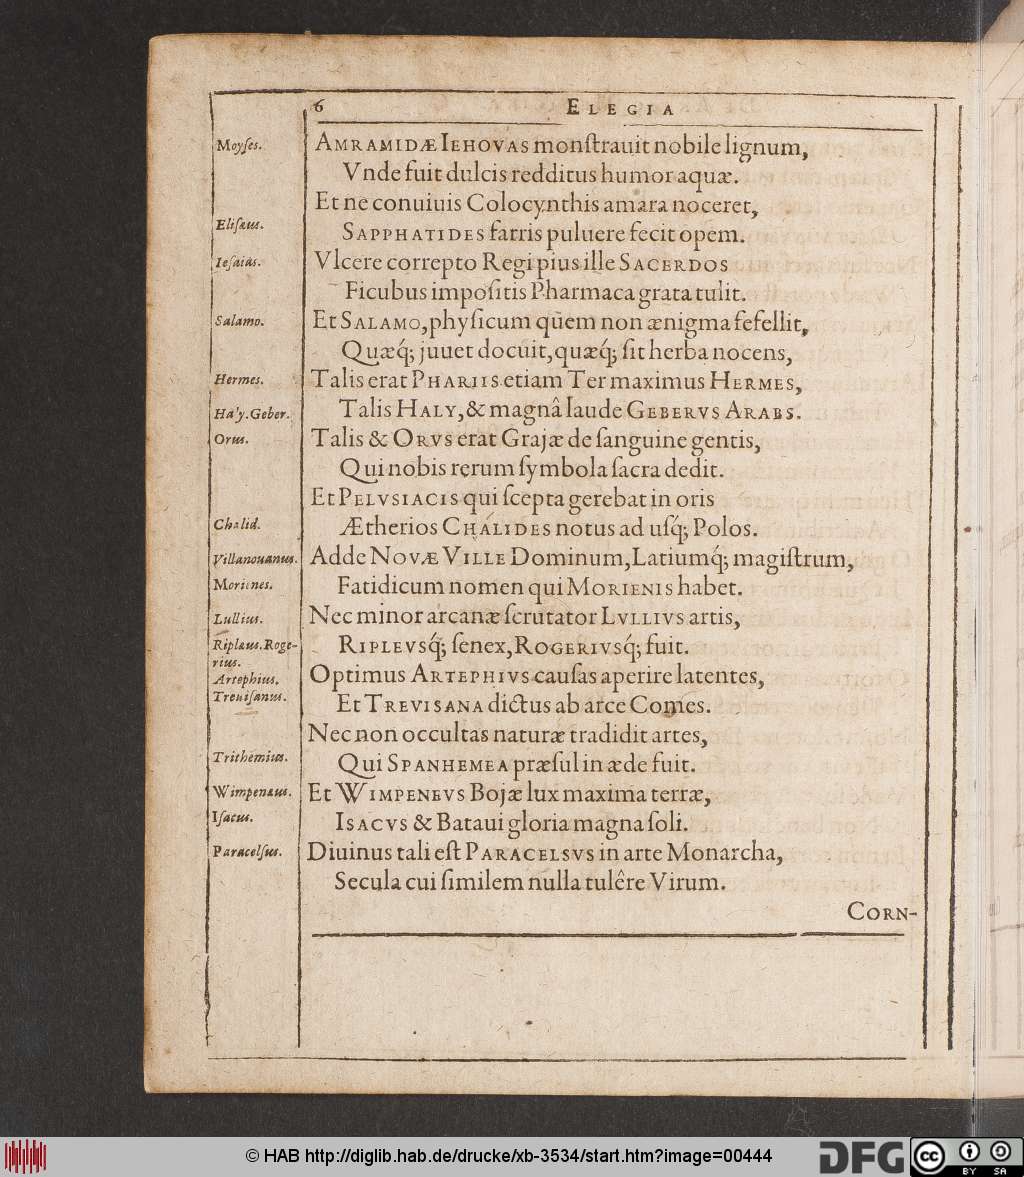 6 ELEGIA
Moyſes.
AMRAMIDÆ IEHOVAS monſtrauit nobile lignum,
Vnde fuit dulcis redditus humor aquæ.
Et ne conuiuis Colocynthis amara noceret,
Eliſæus.
SAPPHATIDES farris puluere fecit opem.
Ieſaias.
Vlcere correpto Regi pius ille SACERDOS
Ficubus impoſitis Pharmaca grata tulit.
Salamo.
Et SALAMO, phyſicum quem non ænigma fefellit,
Quæq́; juuet docuit, quæq́; ſit herba nocens,
Hermes.
Talis erat PHARIIS etiam Ter maximus HERMES,
Ha'y. Geber.
Talis HALY, & magnâ laude GEBERVS ARABS.
Orus.
Talis & ORVS erat Grajæ de ſanguine gentis,
Qui nobis rerum ſymbola ſacra dedit.
Et PELVSIACIS qui ſcepta gerebat in oris
Chalid.
Ætherios CHALIDES notus ad uſq́; Polos.
Villanouanus.
Adde NOVÆ VILLE Dominum, Latiumq́; magiſtrum,
Morienes.
Fatidicum nomen qui MORIENIS habet.
Lullius.
Nec minor arcanæ ſcrutator LVLLIVS artis,
Riplæus. Roge-
rius.
RIPLEVSq́; ſenex, ROGERIVSq́; fuit.
Artephius.
Optimus ARTEPHIVS cauſas aperire latentes,
Treuiſanus.
Et TREVISANA dictus ab arce Comes.
Nec non occultas naturæ tradidit artes,
Trithemius.
Qui SPANHEMEA præſul in æde fuit.
Wimpenæus.
Et WIMPENEVS Bojæ lux maxima terræ,
Iſacus.
ISACVS & Bataui gloria magna ſoli.
Paracelſus.
Diuinus tali eſt PARACELSVS in arte Monarcha,
Secula cui ſimilem nulla tulêre Virum.
CORN-
© HAB http://diglib.hab.de/drucke/xb-3534/start.htm?image=00444
DFG
cc BY SA